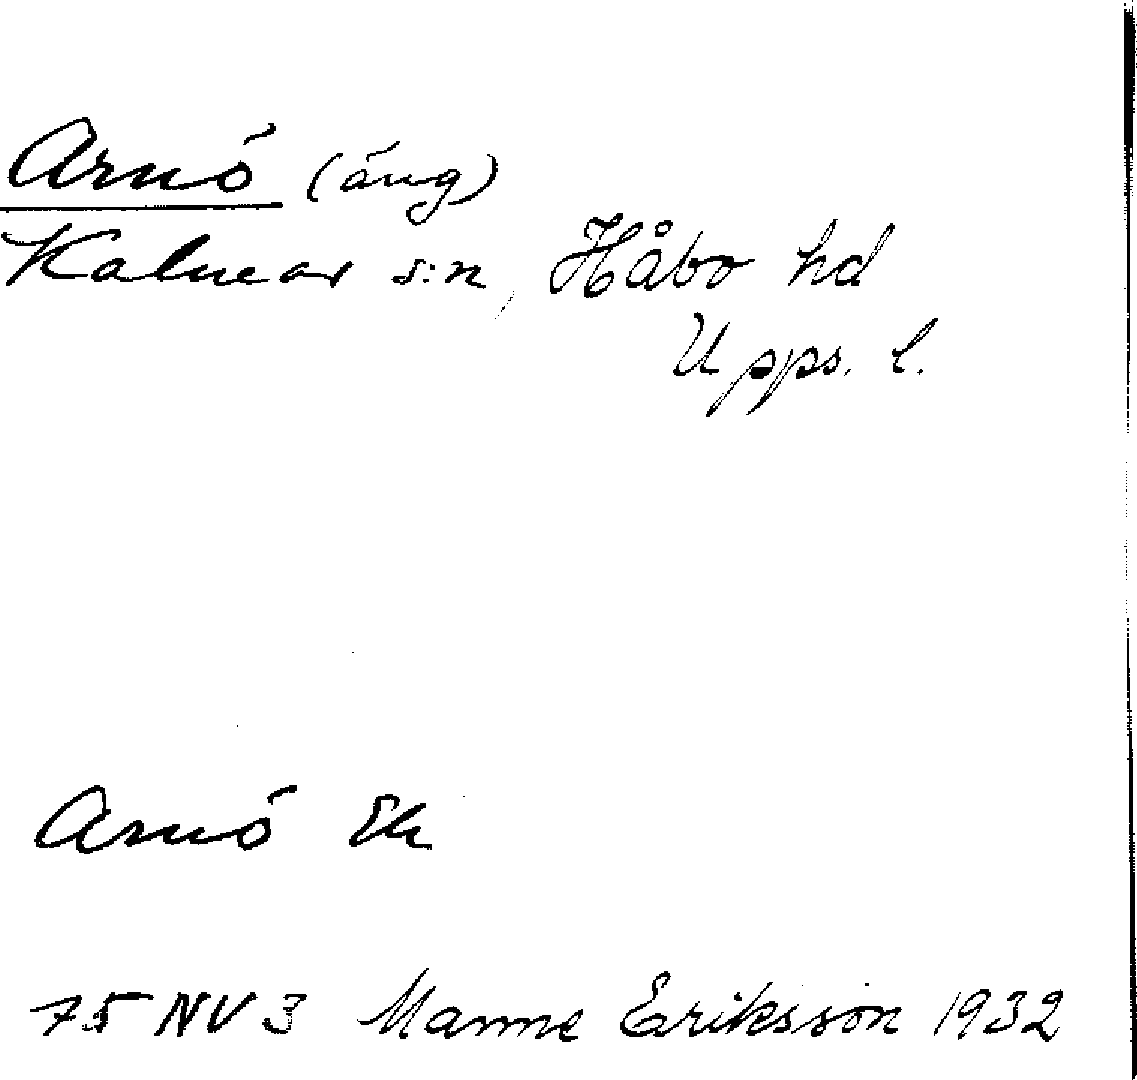 Arnö (äng)
Kalmar s:n, Håbo hd
Upps. l.
Arnö Ek
75 NV 3 Manne Eriksson 1932